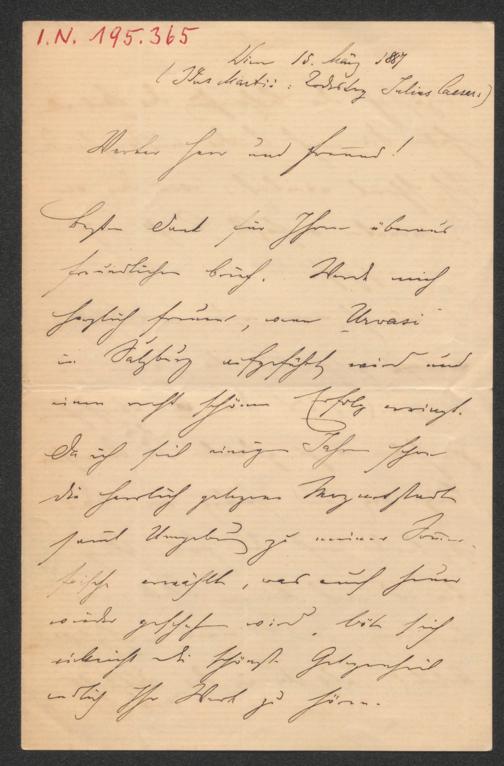 I.N. 195.365
Wien 15. März 1887
(Idus Martii: Todestag Julius Caesars)
Werter Herr und Freund!
Besten Dank für Ihren überaus
freundlichen Brief. Werde mich
herzlich freuen, wenn Urvasi
in Salzburg aufgeführt wird und
einen recht schönen Erfolg erringt.
Da ich seit einigen Jahren schon
die herrlich gelegene Mozartstadt
samt Umgebung zu meiner Sommer-
frische erwählte, was auch heuer
wieder geschehen wird, böte sich
vielleicht die schönste Gelegenheit
endlich Ihr Werk zu hören.